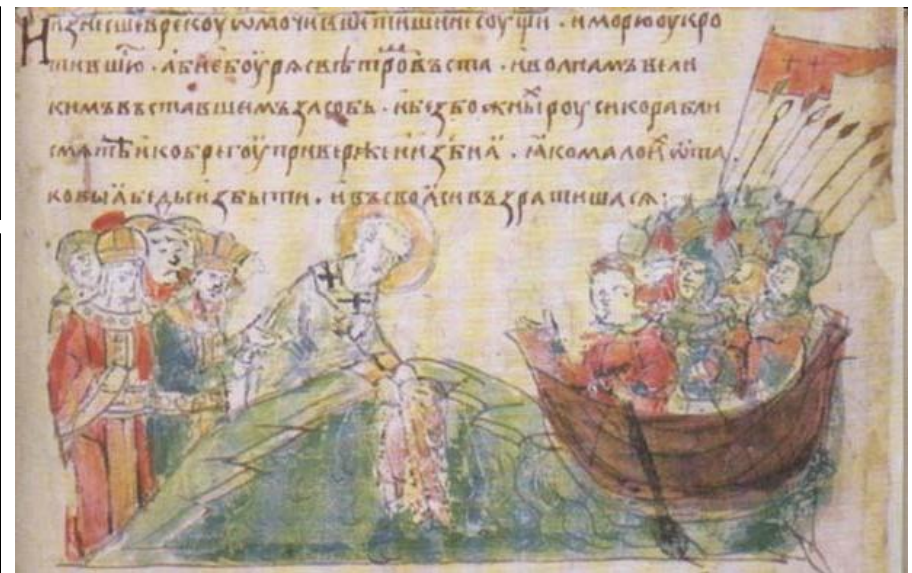 Изнесше в рекоу ѡмочивше тишине соущи · и морю оукро
тившюⷭ · абие боурѧ с вѣтроⷨ въста · и волнамъ вели
кимъ въставшемъ засобь · и безбожныⷯ роуси корабли
смѧте и ко брегоу привερже и изби ѧ · ꙗко мало иⷯ ѿ та
ковыѧ беды избыти · и въ своѧси възратишасѧ :